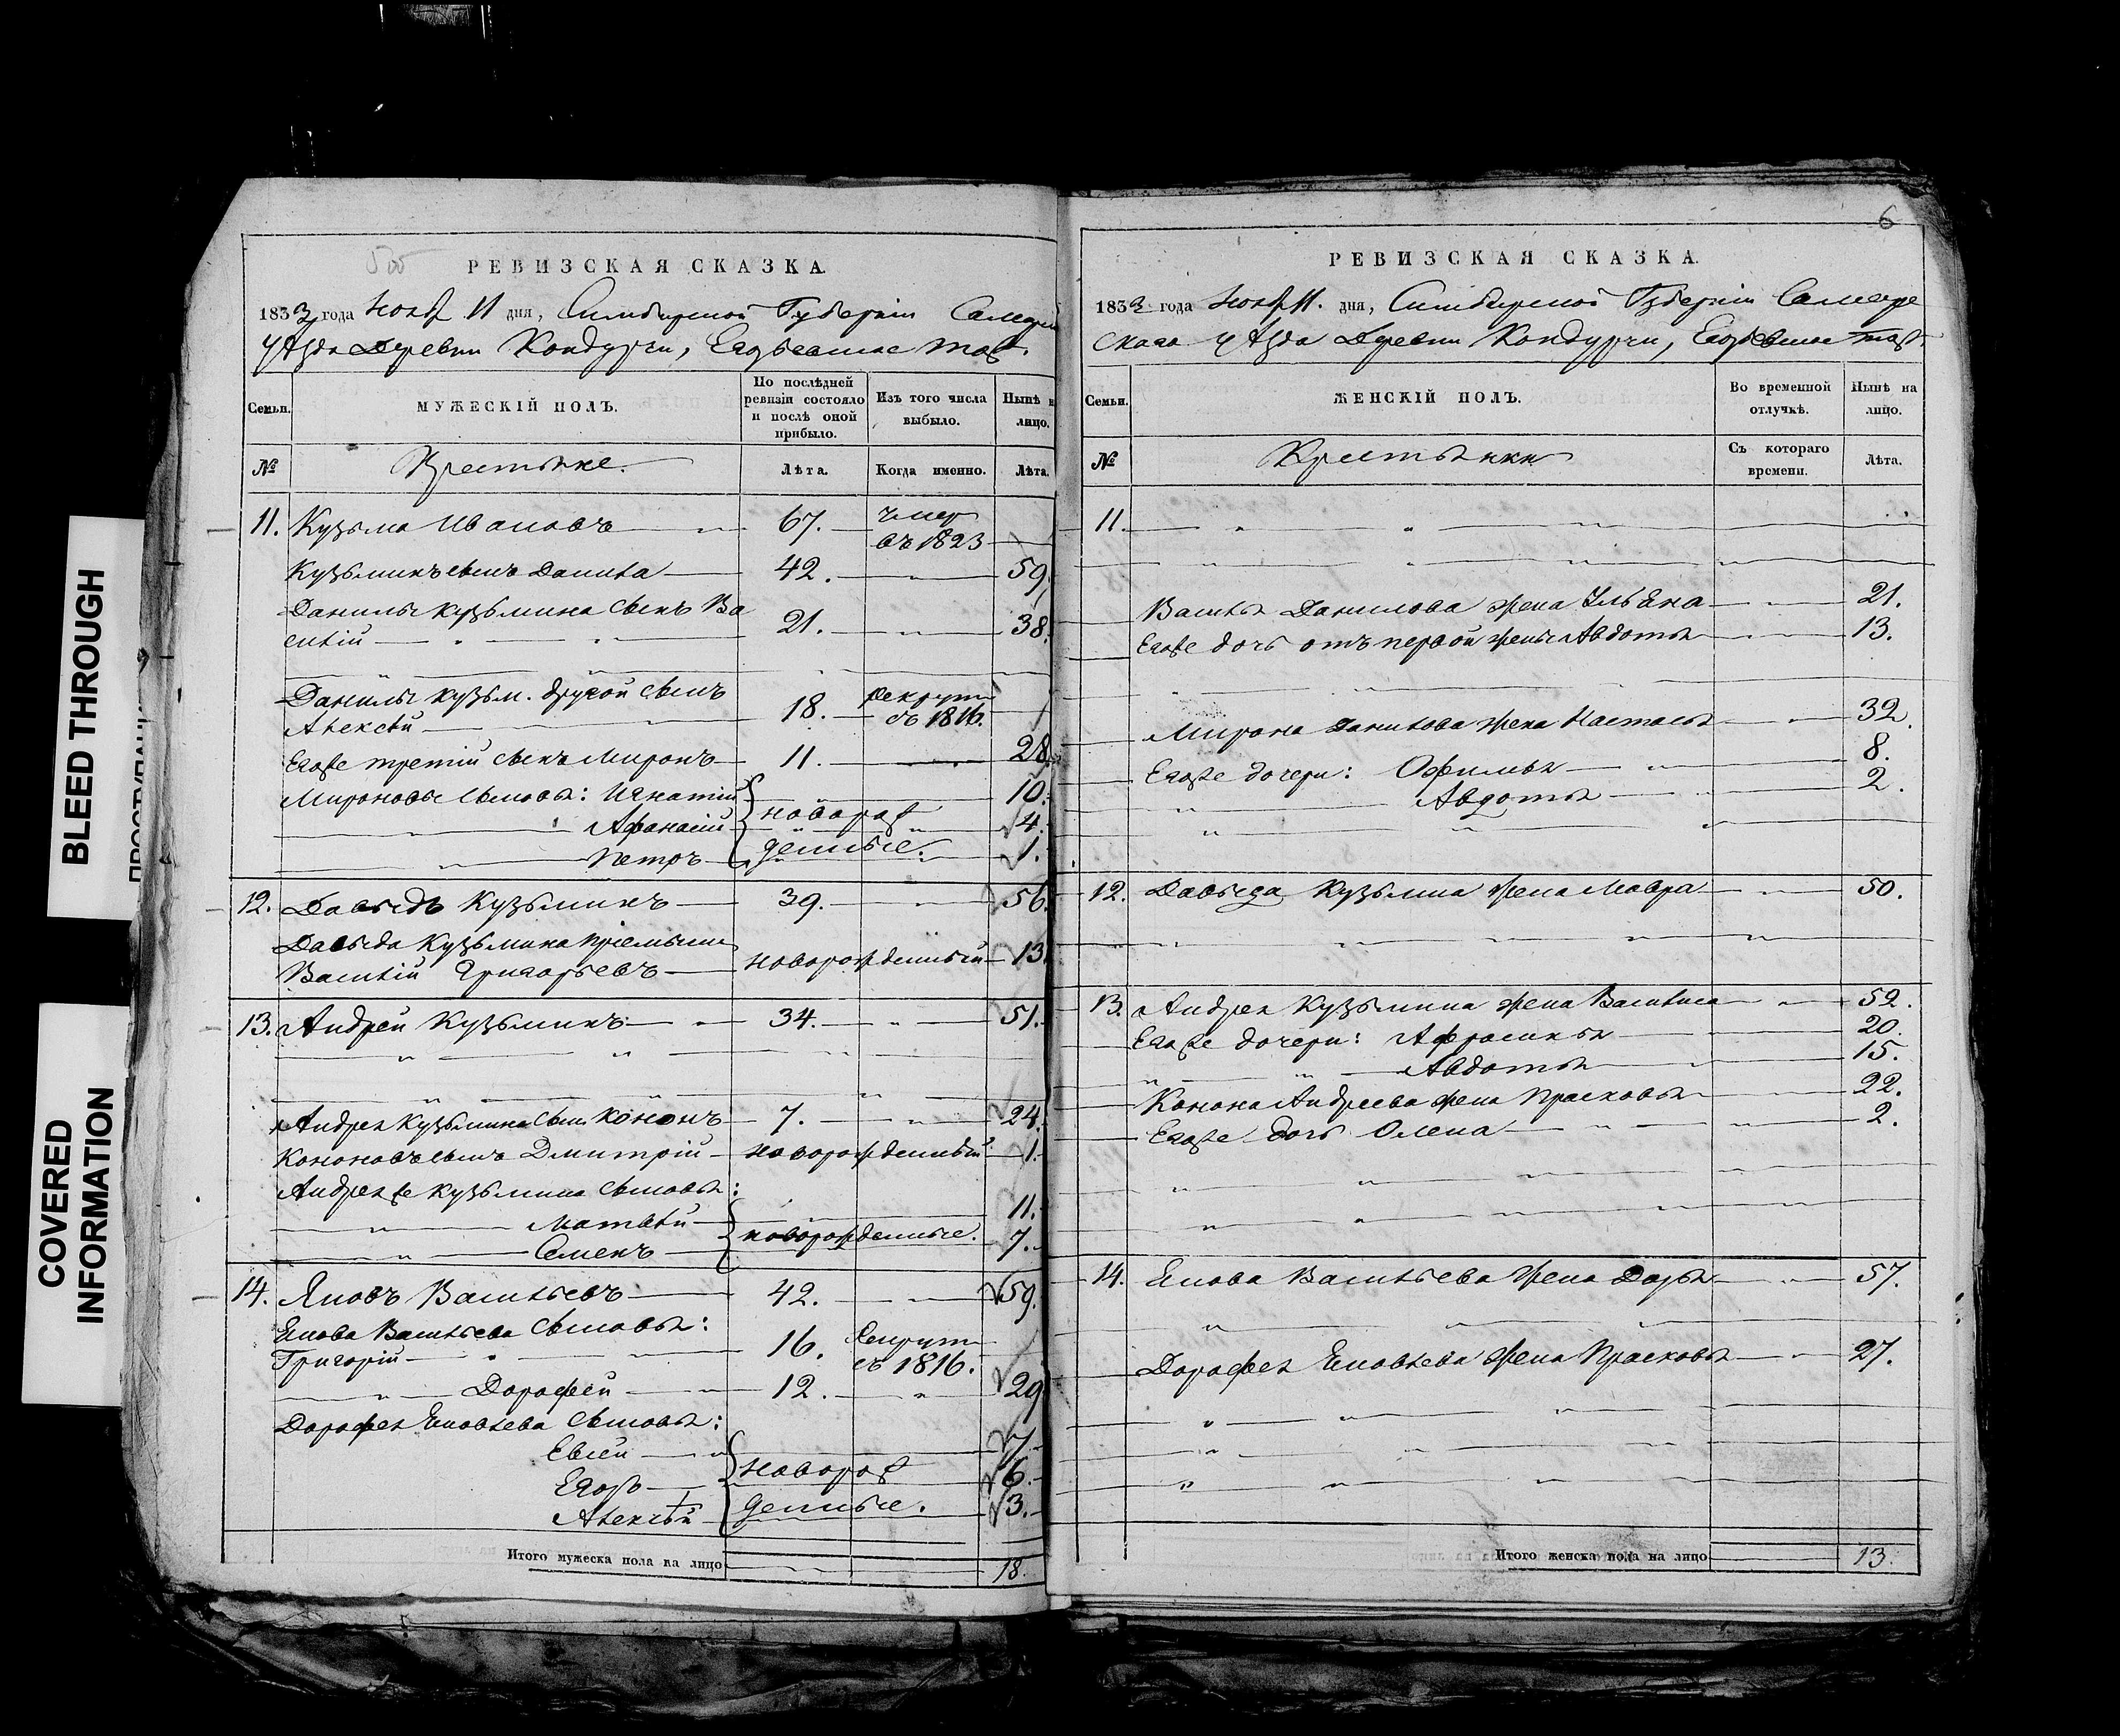 BLEED THROUGH
COVERED
INFORMATION
РЕВИЗСКАЯ СКАЗКА.
1833 года Нояб. 11 дня, Симбирской Губернии
уѣзда Деревни Кондурчи,
Семьи.
МУЖЕСКІЙ ПОЛЪ.
По послѣдней ревизіи состояло и послѣ оной прибыло.
Изъ того числа выбыло.
Нынѣ н лицо.
№
Крестьяне.
Лѣта.
Когда именно.
Лѣта.
11. Кузьма Ивановъ 67. умер
въ 1823
Кузьминъ сынъ Данила 42. 59.
Данилы Кузьмина сынъ Ва
силій 21. 38.
Данилы Кузьм. другой сынъ рекрут
Алексѣй 18. въ 1816.
Егоже третій сынъ Миронъ 11. 28.
Мироновы сыновья: Игнатій 10.
Афанасій новорож 4.
Петръ денные. 1.
12. Давыдъ Кузьминъ 39. 56.
Давыда Кузьмина пріемышъ
Василій Григорьевъ новорожденный 13.
13. Андрей Кузьминъ 34. 51.
Андрея Кузьмина сынъ Кононъ 7. 24.
Кононовъ сынъ Дмитрій новорожденный 1.
Андреяже Кузьмина сыновья:
Матвѣй 11.
Семенъ новорожденные. 7.
14. Яковъ Васильевъ 42. 59.
Якова Васильева сыновья: рекрут
Григорій 16. въ 1816.
Дорофей 12. 29.
Дорофея Яковлева сыновья:
7.
Егоръ новорож 6.
Алексѣй денные. 3.
Итого мужеска пола на лицо 18.
6
РЕВИЗСКАЯ СКАЗКА.
1833 года Нояб. 11. дня, Симбирской Губерніи Самар
скаго уѣзда Деревни Кондурчи,
Семьи.
ЖЕНСКІЙ ПОЛЪ.
Во временной отлучкѣ.
Нынѣ на лицо.
№
Крестьянки
Съ котораго времени.
Лѣта.
11.
Василья Данилова жена Ульяна 21.
Егоже дочь отъ первой жены Авдотья 13.
Мирона Данилова жена Настасья 32.
Егоже дочери: Офимья 8.
Авдотья 2.
12. Давыда Кузьмина жена Мавра 50.
13. Андрея Кузьмина жена Василиса 52.
Егоже дочери: Афросинья 20.
Авдотья 15.
Конона Андреева жена Прасковья 22.
Егоже дочь Олена 2.
14. Якова Васильева жена Дарья 57.
Дорофея Яковлева жена Прасковья 27.
Итого женска пола на лицо 13.